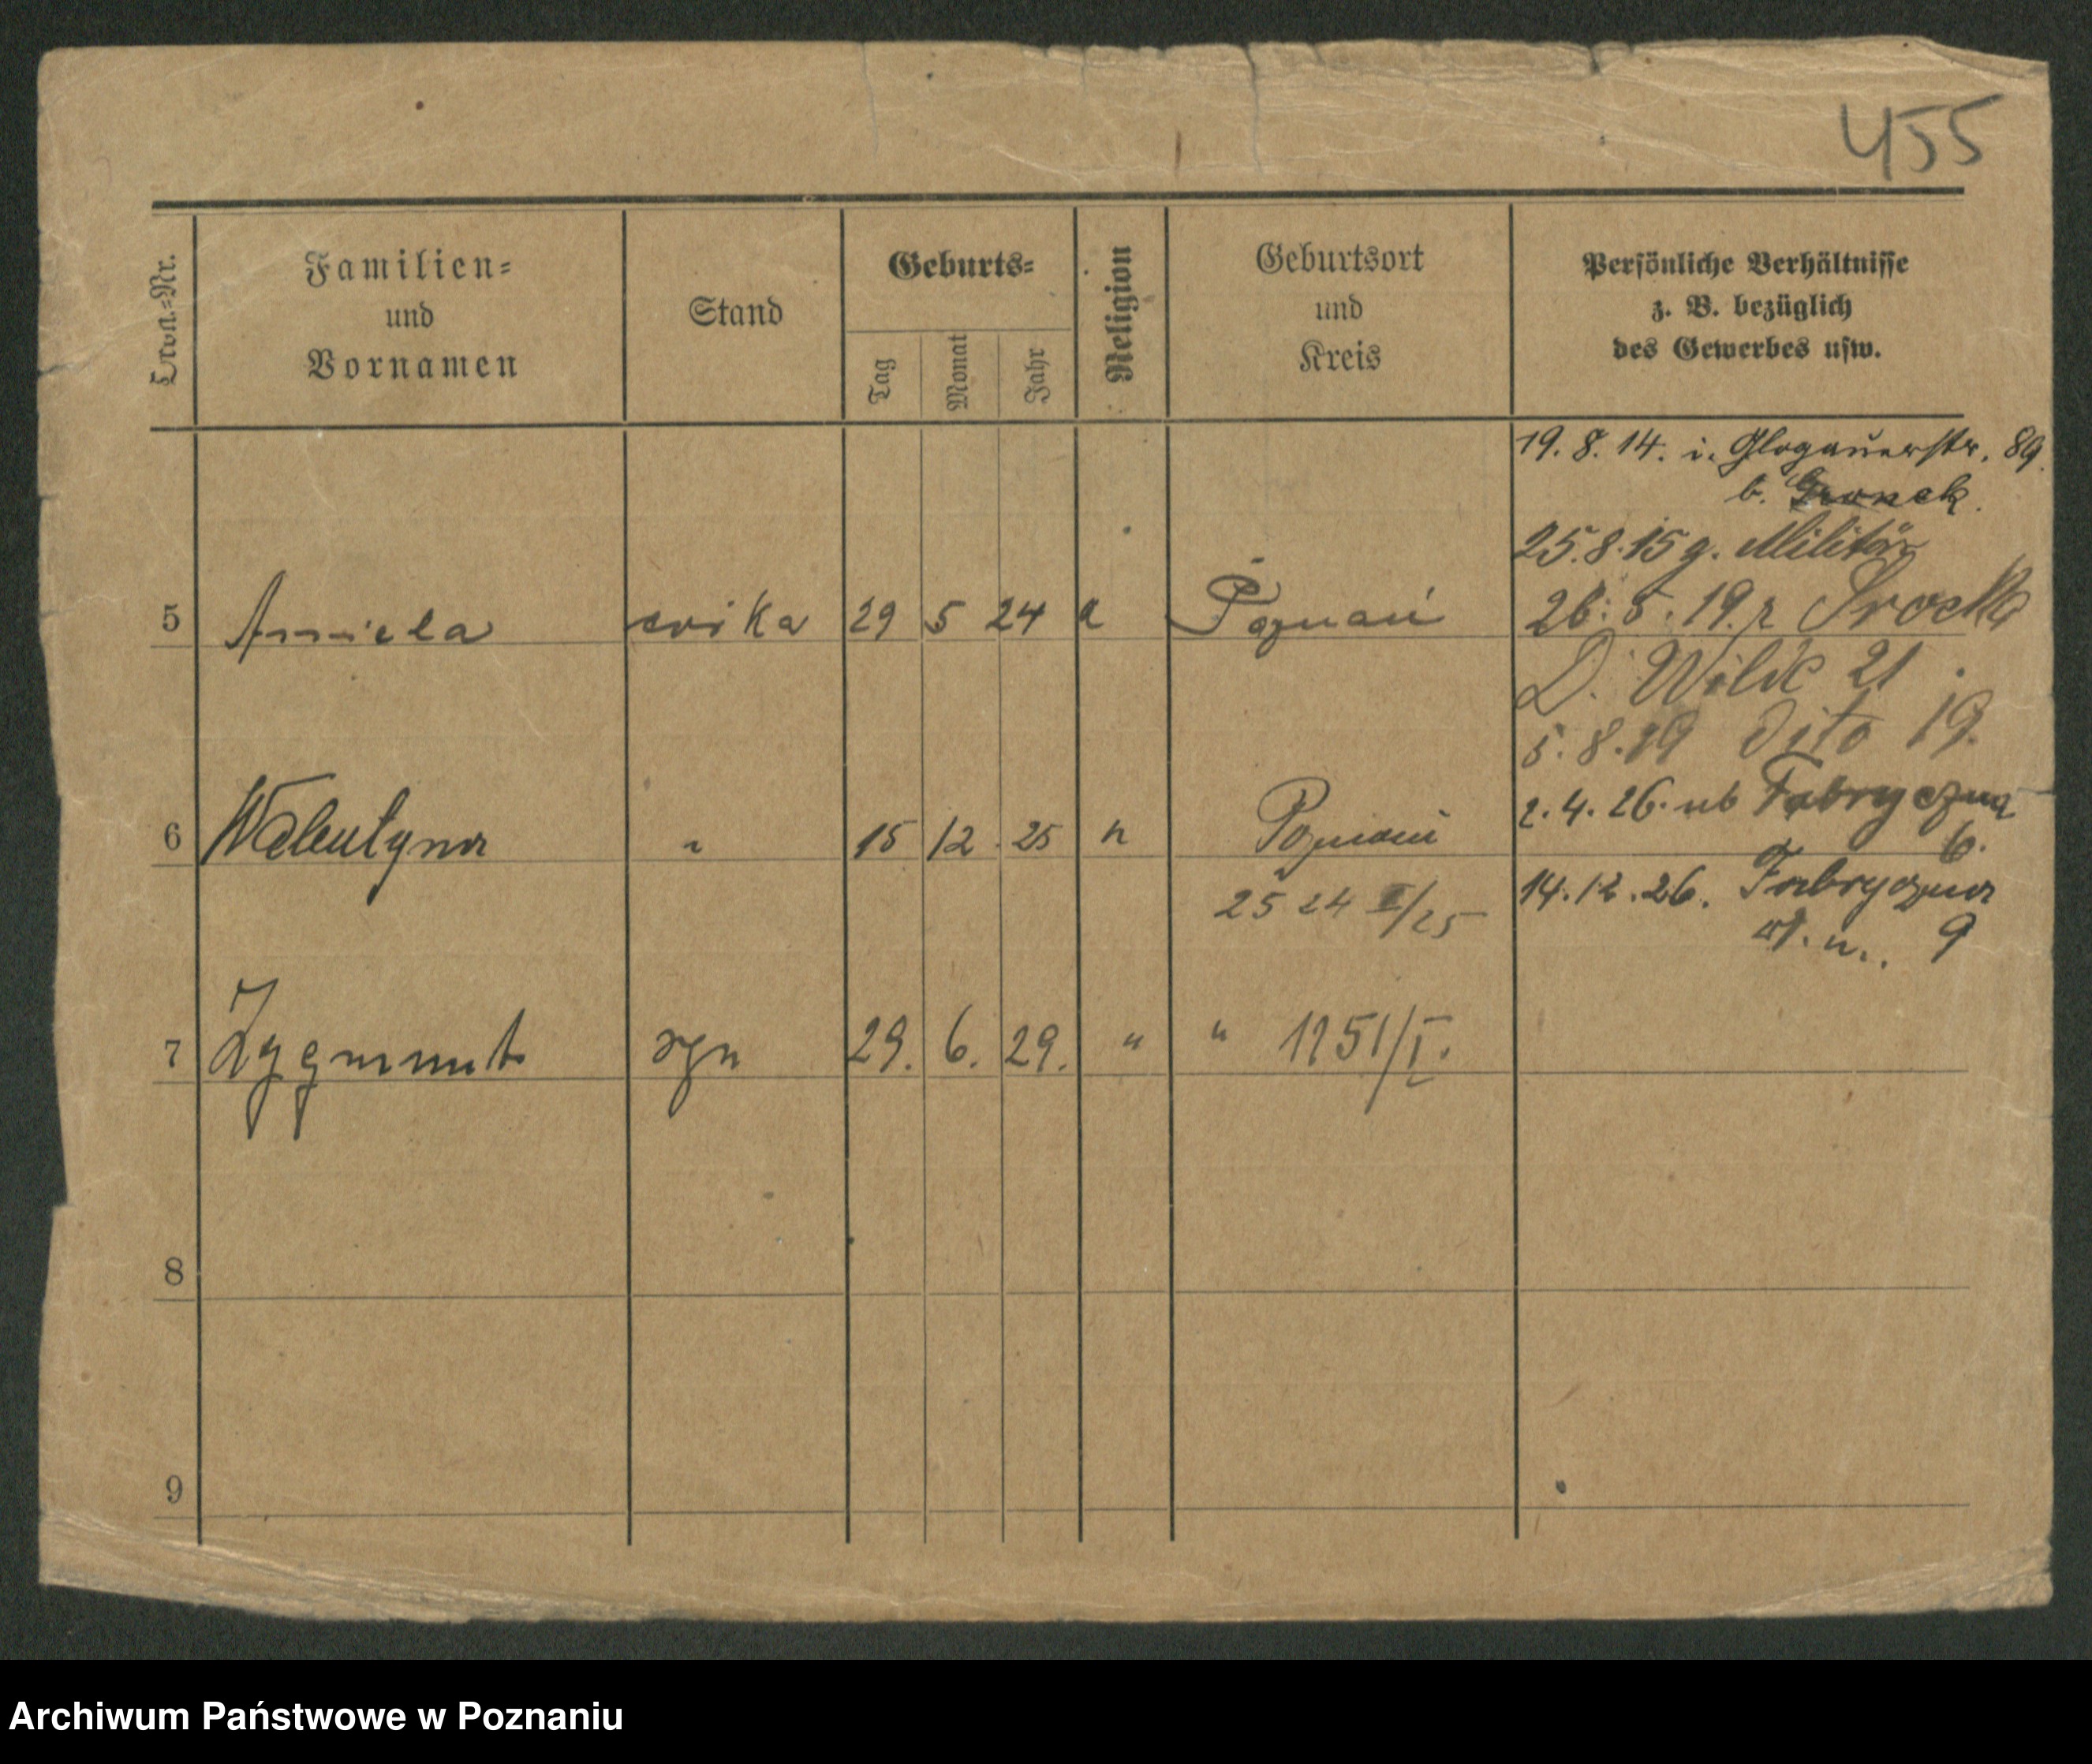 455
Lfd.-Nr.
Familien-
und
Vornamen
Stand
Geburts-
Tag
Monat
Jahr
Religion
Geburtsort
und
Kreis
Persönliche Verhältnisse
z. B. bezüglich
des Gewerbes usw.
19. 8. 14. i. Glogauerstr. 89.
b.
25. 8. 15 g. Militär
5 Aniela córka 29 5 24 k Poznań
26. 5. 19. r
D. Wilde 21.
5. 8. 19 dito 19.
6 Walentyna " 15 12 25 " Poznań
2. 4. 26. ub Fabryczna
6.
25 24 I/25
14. 12. 26. Fabryczna
9
7 Zygmunt syn 29. 6. 29. " " 1251/I.
8
9
Archiwum Państwowe w Poznaniu